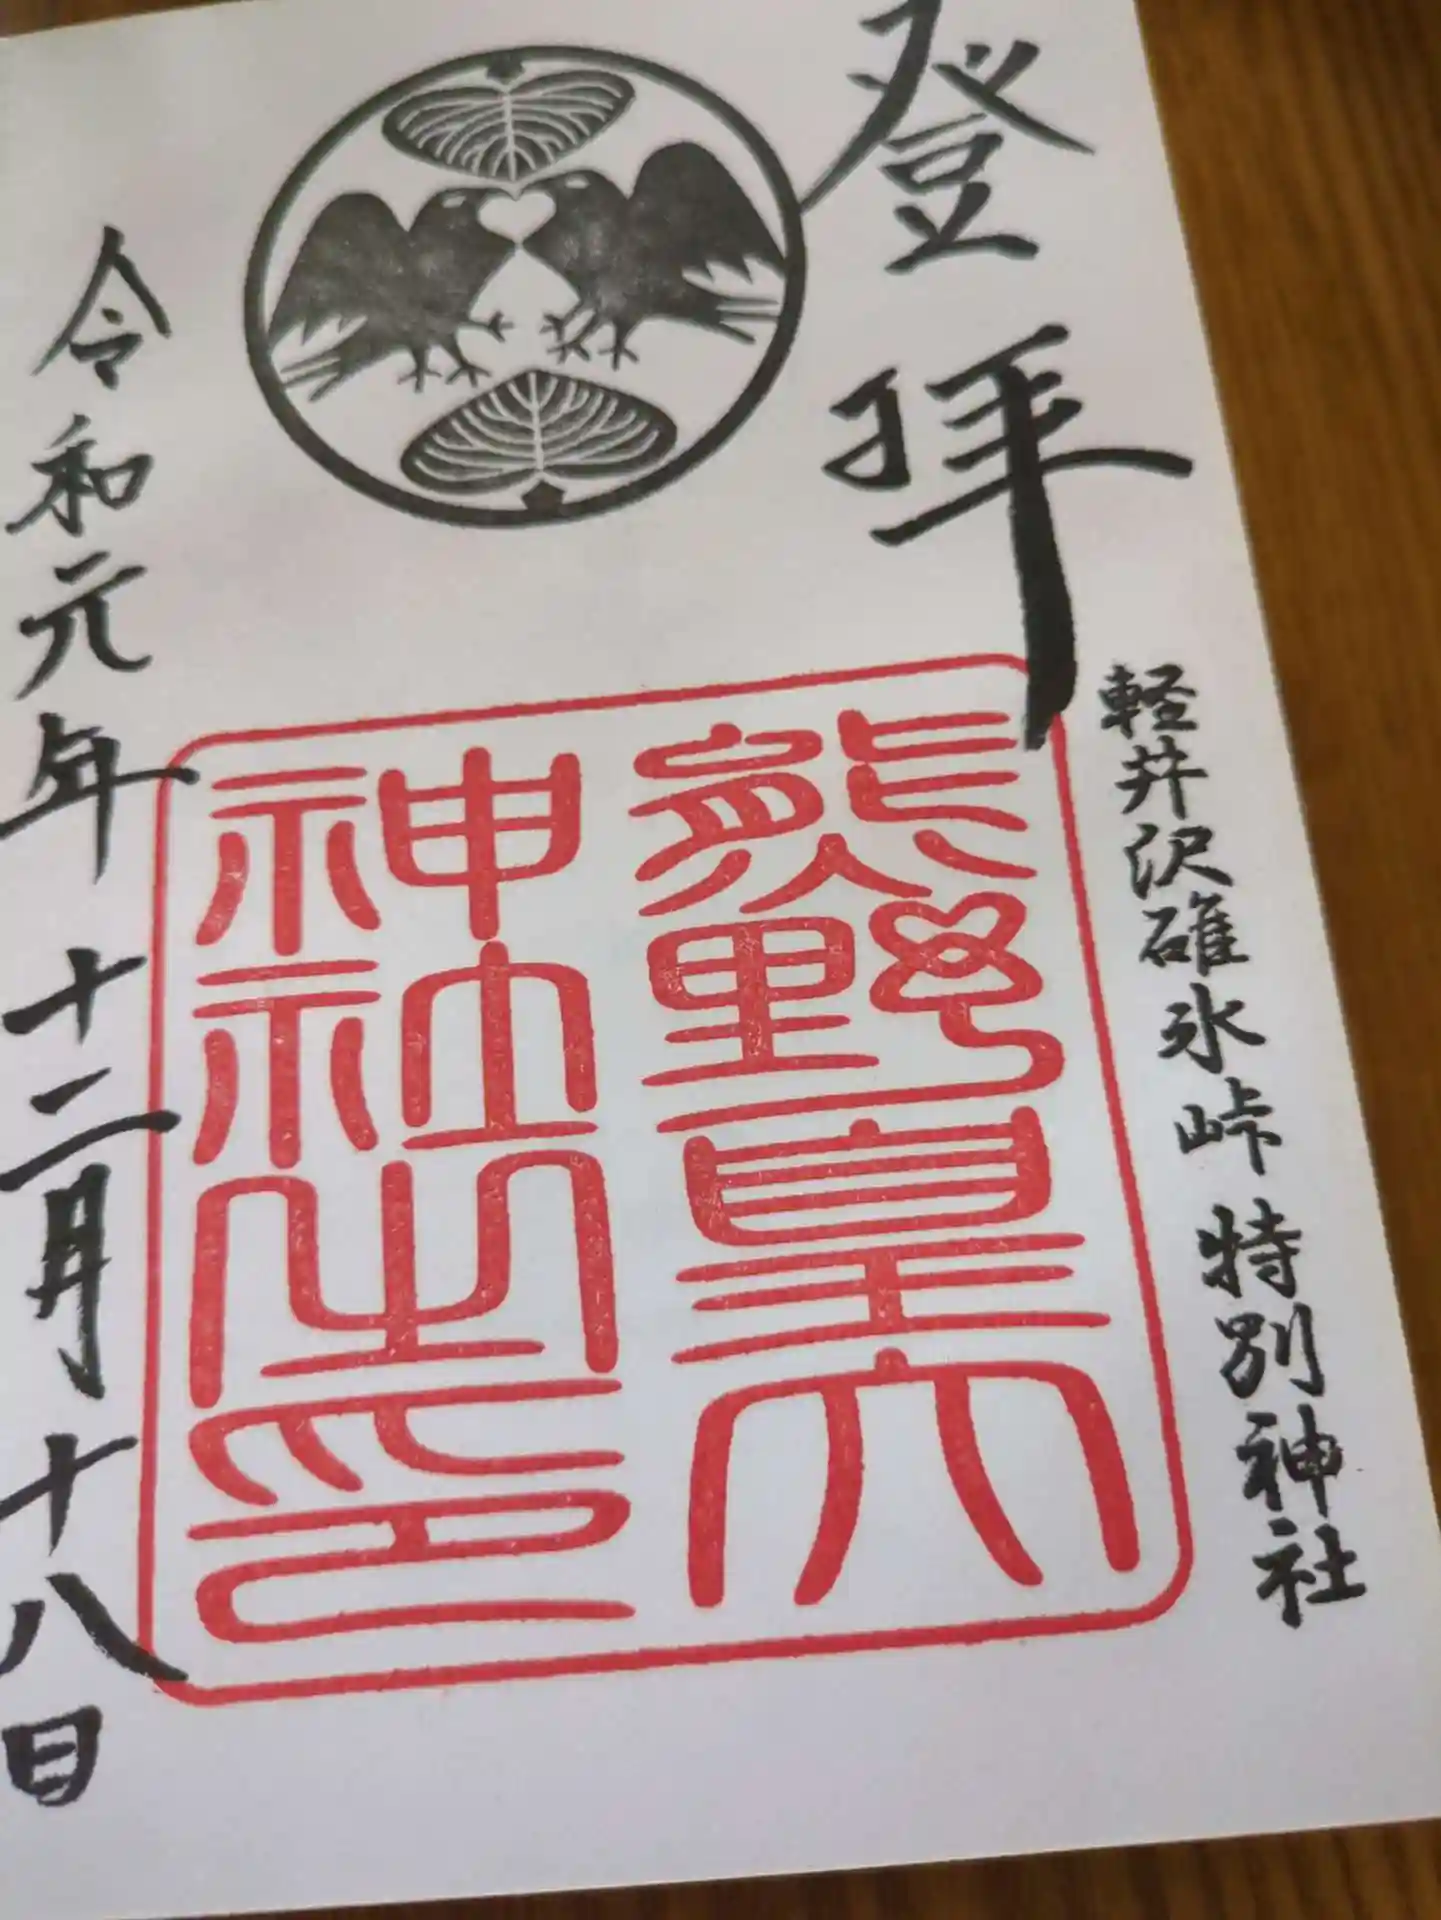 登拝
軽井沢碓氷峠特別神社
熊野皇大
神社之印
令和元年十二月十八日